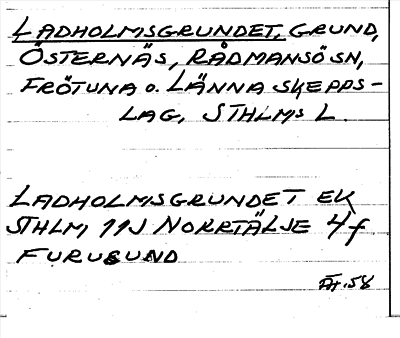 LADHOLMSGRUNDET, GRUND,
ÖSTERNÄS, RÅDMANSÖ SN,
FRÖTUNA o. LÄNNA SKEPPS-
LAG, STHLMS L.
LADHOLMSGRUNDET EK
STHLM 11J NORRTÄLJE 4f
FURUSUND
ÄT.58